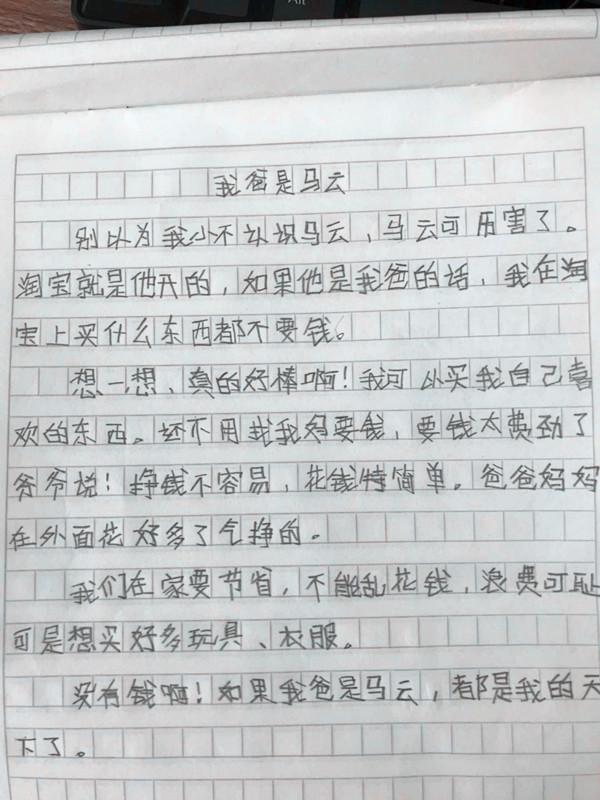 Alt
我爸是马云
别以为我小不认识马云，马云可历害了。
淘宝就是他开的，如果他是我爸的话，我在淘
宝上买什么东西都不要钱。
想一想、真的好棒啊！我可以买我自己喜
欢的东西。还不用找我妈要钱，要钱太费劲了
爷爷说！挣钱不容易，花钱特简单。爸爸妈妈
在外面花好多了气挣的。
我们在家要节省，不能乱花钱，浪费可耻
可是想买好多玩具、衣服。
没有钱啊！如果我爸是马云，都是我的天
下了。